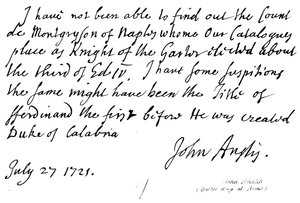 I have not been able to find out the Count
de Montgryson of Naples whome Our Catalogues
place as Knight of the Garter elected about
the third of Ed IV. I have some suspitions
the same might have been the Title of
Ferdinand the first before He was created
Duke of Calabria
John Anstis.
July 27 1721.
(Garter King of Arms)